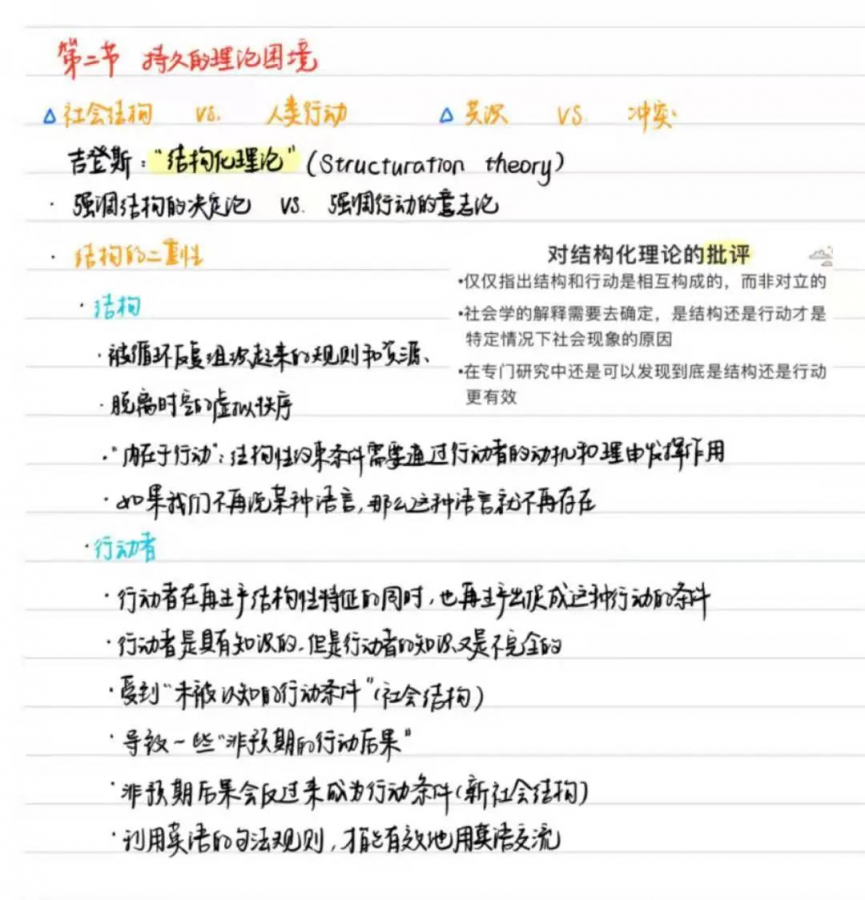 第二节 持久的理论困境
△社会结构 vs. 人类行动 △共识 VS. 冲突
吉登斯："结构化理论"(Structuration theory)
· 强调结构的决定论 VS. 强调行动的意志论
· 结构的二重性
· 结构
· 被循环反复组织起来的规则和资源、
· 脱离时空的虚拟秩序
对结构化理论的批评
•仅仅指出结构和行动是相互构成的，而非对立的
•社会学的解释需要去确定，是结构还是行动才是
特定情况下社会现象的原因
•在专门研究中还是可以发现到底是结构还是行动
更有效
·"内在于行动"：结构性约束条件需要通过行动者的动机和理由发挥作用
·如果我们不再说某种语言，那么这种语言就不再存在
·行动者
·行动者在再生产结构性特征的同时，也再生产出促成这种行动的条件
·行动者是具有知识的，但是行动者的知识又是不完全的
·受到"未被认知的行动条件"(社会结构)
·导致一些"非预期的行动后果"
·非预期后果会反过来成为行动条件(新社会结构)
·利用英语的句法规则，才能有效地用英语交流